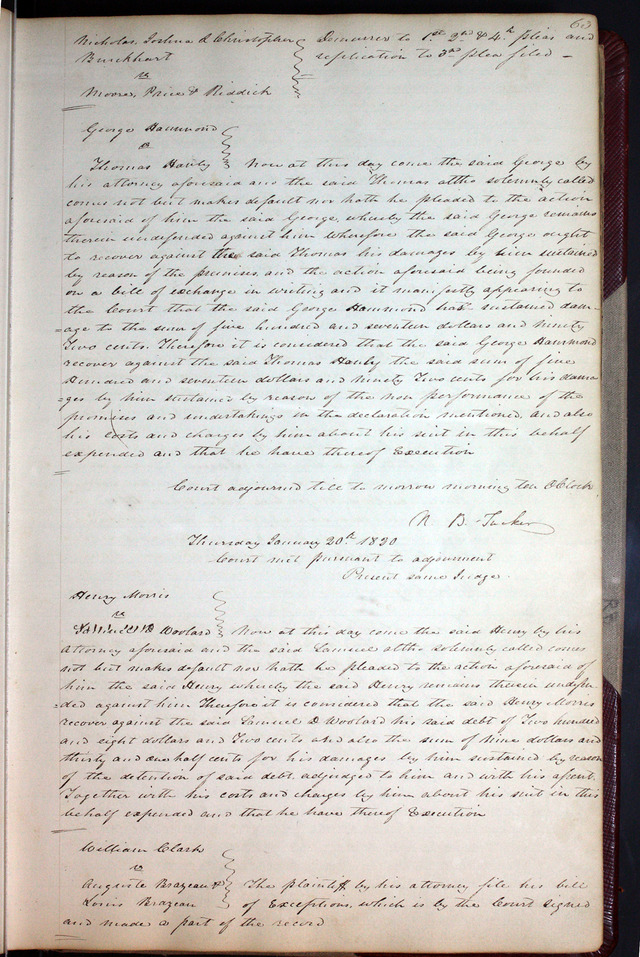 63
Nicholas, Joshua & Christopher Demurrer to 1st 2nd & 4th pleas and
Burckhart replication to 3rd plea filed –
vs
Moores, Price & Riddick
George Hammond
vs
Thomas Hanly Now at this day come the said George by
his attorney aforesaid and the said Thomas altho solemnly called
comes not but makes default nor hath he pleaded to the action
aforesaid of him the said George, whereby the said George remains
therein undefended against him Wherefore the said George ought
to recover against the said Thomas his damages by him sustained
by reason of the premises, and the action aforesaid being founded
on a bill of exchange in writing and it manifestly appearing to
the Court that the said George Hammond hath sustained dam-
=age to the sum of five hundred and seventeen dollars and ninety
Two cents. Therefore it is considered that the said George Hammond
recover against the said Thomas Hanly the said sum of five
Hundred and seventeen dollars and ninety Two cents for his dama
=ges by him sustained by reason of the non performance of the
promises and undertakings in the declaration mentioned, and also
his costs and charges by him about his suit in this behalf
expended and that he have thereof Execution
Court adjourned till to morrow morning ten OClock
N. B. Tucker
Thursday January 20th 1820
Court met pursuant to adjournment
Present same Judge.
Henry Morris
vs
Samuel D Woolard Now at this day come the said Henry by his
Attorney aforesaid and the said Samuel altho solemnly called comes
not but makes default nor hath he pleaded to the action aforesaid of
him the said Henry whereby the said Henry remains therein undefen-
=ded against him Therefore it is considered that the said Henry Morris
recover against the said Samuel D Woolard his said debt of Two hundred
and eight dollars and Two cents and also the sum of Nine dollars and
thirty and one half cents for his damages by him sustained by reason
of the detention of said debt adjudged to him and with his assent.
Together with his costs and charges by him about his suit in this
behalf expended and that he have thereof Execution
William Clark
vs
Auguste Brazeau & The plaintiff by his attorney file his bill
Louis Brazeau of Exceptions, which is by the Court signed
and made a part of the record